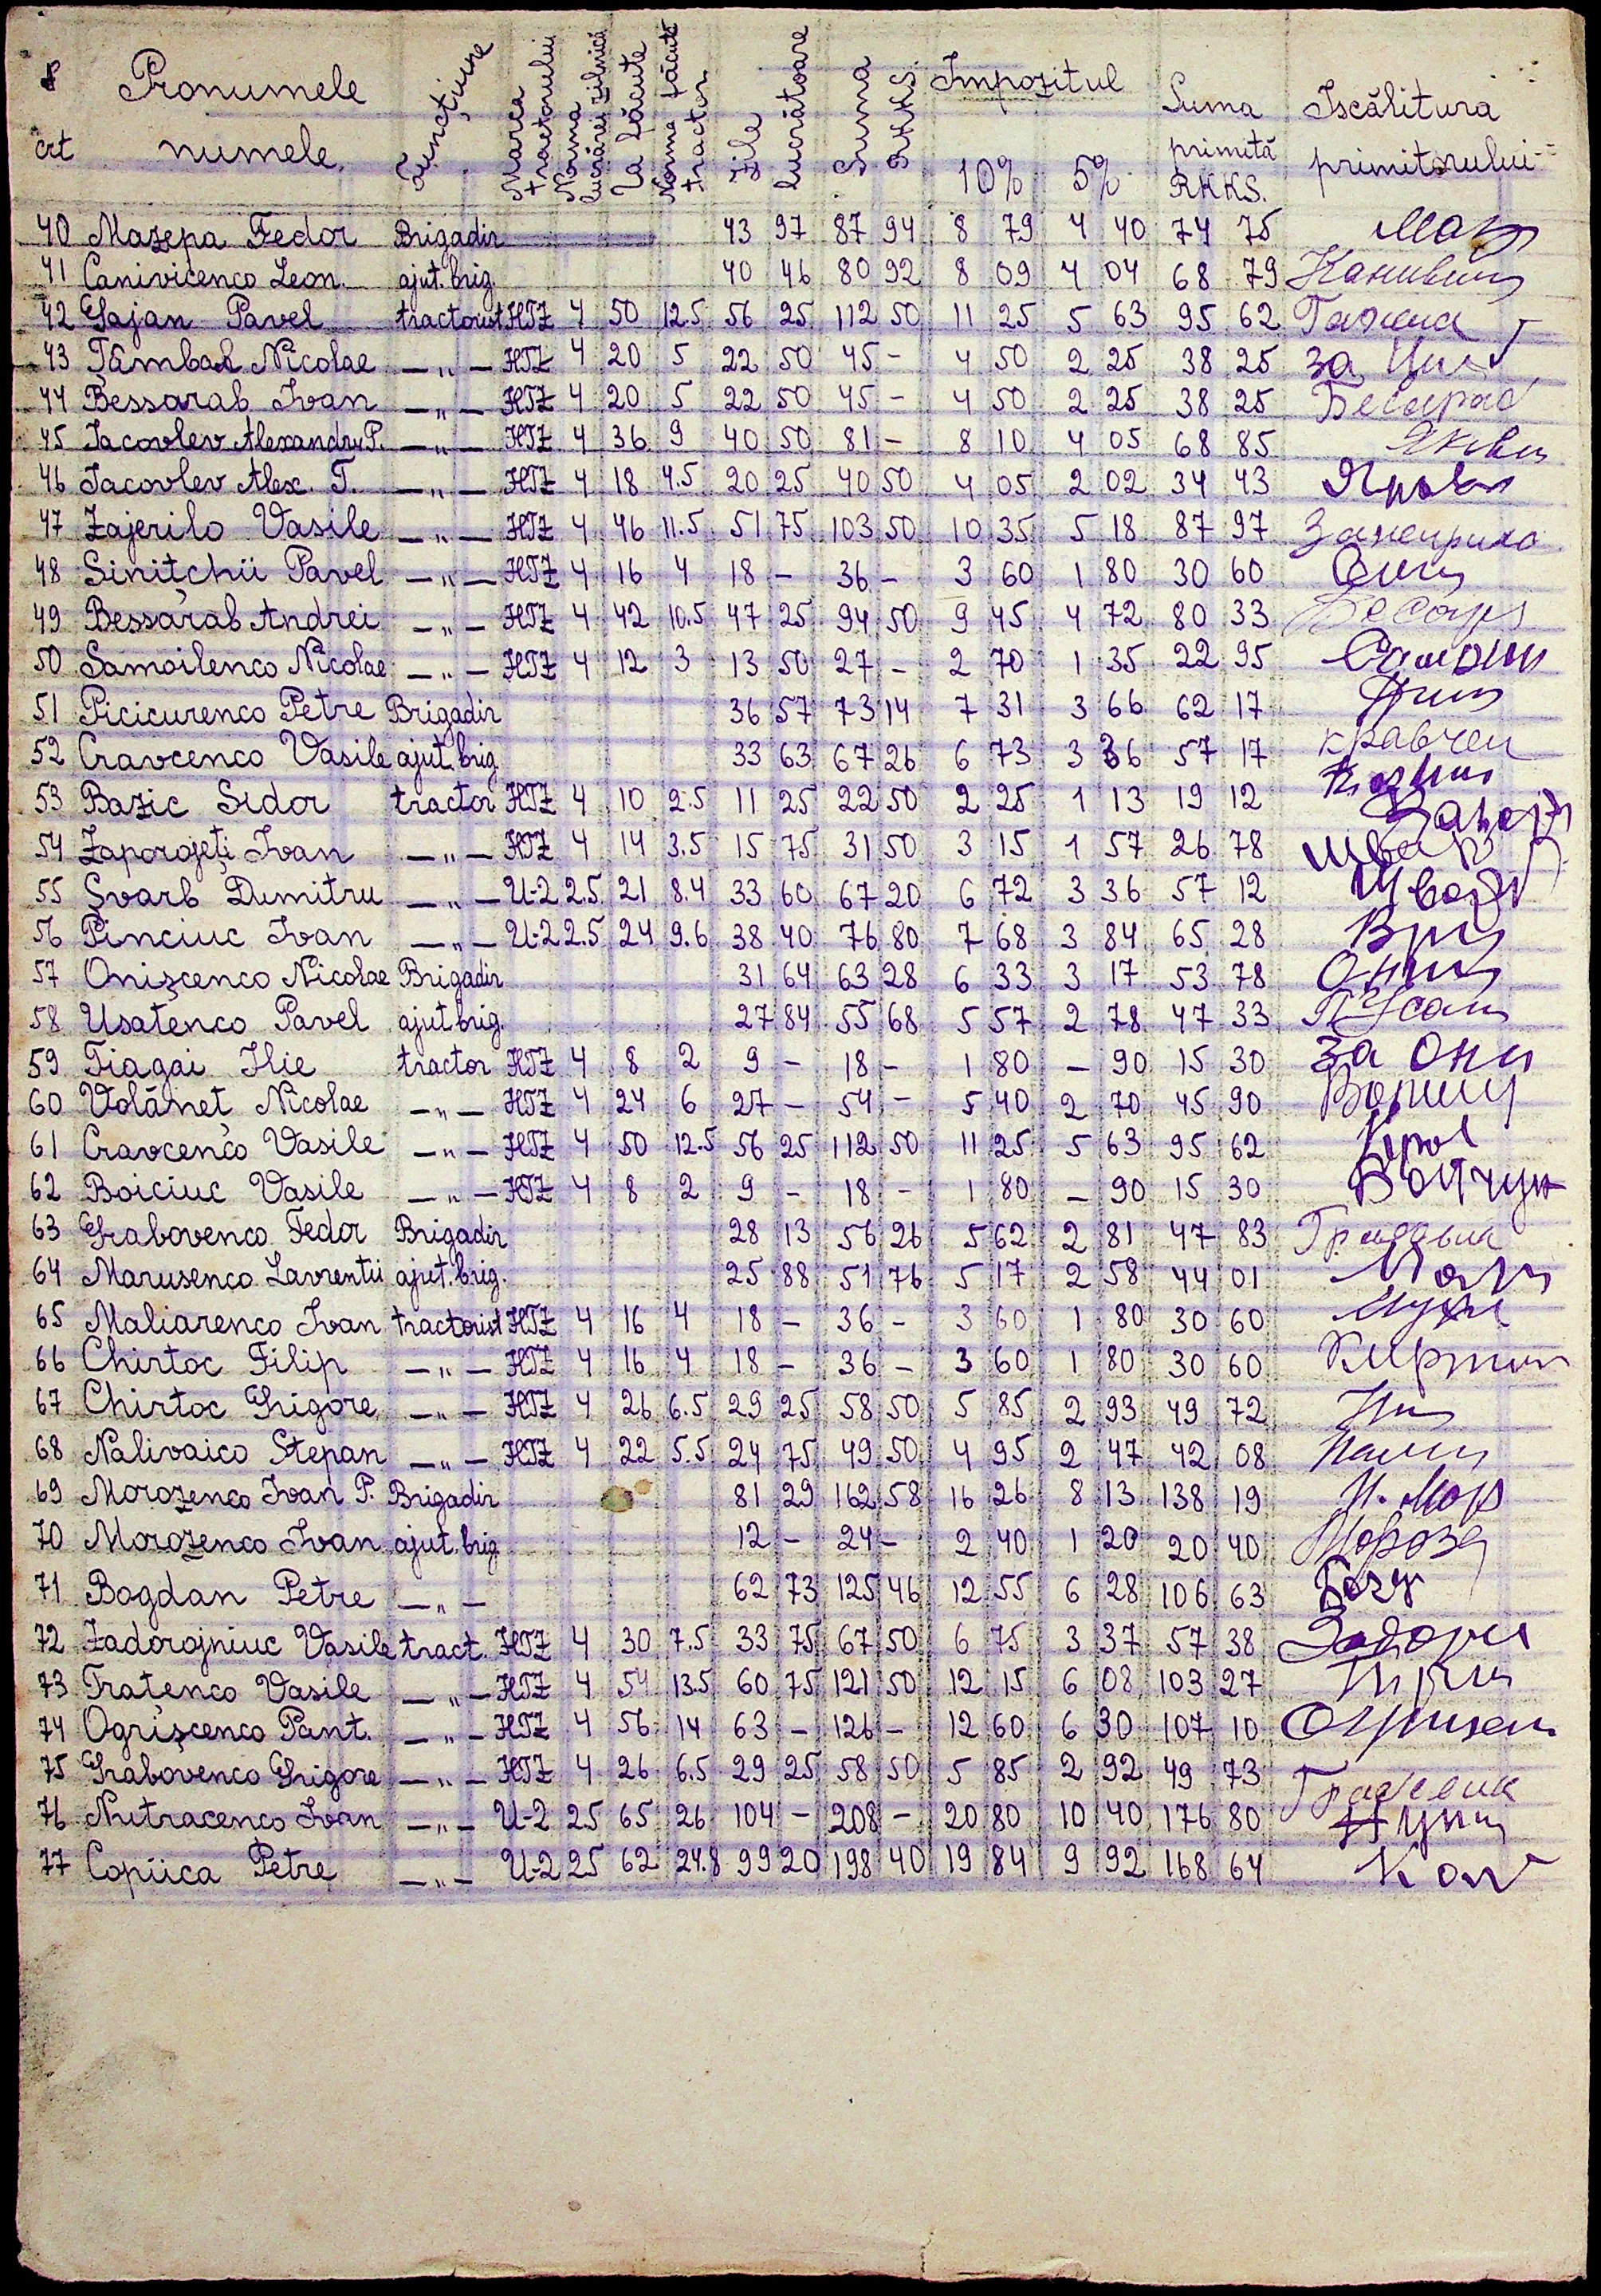 Pronumele numele
crt
Funcțiune
Marca tractorului
Norma lucrărei zilnică
Ha făcute
Norma făcută tractor
Zile lucrătoare
Suma RKKS.
Impozitul
10% 5%
Suma primită RKKS.
Iscălitura primitorului
40 Mazepa Fedor Brigadir 43 97 87 94 8 79 4 40 74 75
41 Canivicenco Leon. ajut. brig. 40 46 80 92 8 09 4 04 68 79
42 Gajan Pavel tractorist HTZ 4 50 12.5 56 25 112 50 11 25 5 63 95 62
43 Tâmbal Nicolae —„— HTZ 4 20 5 22 50 45 – 4 50 2 25 38 25 за
44 Bessarab Ivan —„— HTZ 4 20 5 22 50 45 – 4 50 2 25 38 25
45 Iacovlev Alexandru P. —„— HTZ 4 36 9 40 50 81 – 8 10 4 05 68 85
46 Iacovlev Alex. T. —„— HTZ 4 18 4.5 20 25 40 50 4 05 2 02 34 43
47 Zajerilo Vasile —„— HTZ 4 46 11.5 51 75 103 50 10 35 5 18 87 97
48 Sinițchii Pavel —„— HTZ 4 16 4 18 – 36 – 3 60 1 80 30 60
49 Bessarab Andrei —„— HTZ 4 42 10.5 47 25 94 50 9 45 4 72 80 33
50 Samoilenco Nicolae —„— HTZ 4 12 3 13 50 27 – 2 70 1 35 22 95
51 Picicurenco Petre Brigadir 36 57 73 14 7 31 3 66 62 17
52 Cravcenco Vasile ajut. brig. 33 63 67 26 6 73 3 36 57 17 кравчен
53 Bazic Sidor tractor HTZ 4 10 2.5 11 25 22 50 2 25 1 13 19 12
54 Zaporojeți Ivan —„— HTZ 4 14 3.5 15 75 31 50 3 15 1 57 26 78
55 Șvarb Dumitru —„— U-2 2.5 21 8.4 33 60 67 20 6 72 3 36 57 12
56 Pinciuc Ivan —„— U-2 2.5 24 9.6 38 40 76 80 7 68 3 84 65 28
57 Onișcenco Nicolae Brigadir 31 64 63 28 6 33 3 17 53 78
58 Usatenco Pavel ajut brig. 27 84 55 68 5 57 2 78 47 33
59 Tiagai Ilie tractor HTZ 4 8 2 9 – 18 – 1 80 – 90 15 30 за
60 Volăneț Nicolae —„— HTZ 4 24 6 27 – 54 – 5 40 2 70 45 90
61 Cravcenco Vasile —„— HTZ 4 50 12.5 56 25 112 50 11 25 5 63 95 62
62 Boiciuc Vasile —„— HTZ 4 8 2 9 – 18 – 1 80 – 90 15 30 Бойчук
63 Grabovenco Fedor Brigadir 28 13 56 26 5 62 2 81 47 83
64 Marusenco Lavrentii ajut. brig. 25 88 51 76 5 17 2 58 44 01
65 Maliarenco Ivan tractorist HTZ 4 16 4 18 – 36 – 3 60 1 80 30 60
66 Chirtoc Filip —„— HTZ 4 16 4 18 – 36 – 3 60 1 80 30 60
67 Chirtoc Grigore —„— HTZ 4 26 6.5 29 25 58 50 5 85 2 93 49 72
68 Nalivaico Stepan —„— HTZ 4 22 5.5 24 75 49 50 4 95 2 47 42 08
69 Morozenco Ivan P. Brigadir 81 29 162 58 16 26 8 13 138 19
70 Morozenco Ivan ajut. brig. 12 – 24 – 2 40 1 20 20 40
71 Bogdan Petre —„— 62 73 125 46 12 55 6 28 106 63
72 Zadorojniuc Vasile tract. HTZ 4 30 7.5 33 75 67 50 6 75 3 37 57 38
73 Tratenco Vasile —„— HTZ 4 54 13.5 60 75 121 50 12 15 6 08 103 27
74 Ogrișcenco Pant. —„— HTZ 4 56 14 63 – 126 – 12 60 6 30 107 10
75 Grabovenco Grigore —„— HTZ 4 26 6.5 29 25 58 50 5 85 2 92 49 73
76 Nutracenco Ivan —„— U-2 25 65 26 104 – 208 – 20 80 10 40 176 80
77 Copiica Petre —„— U-2 25 62 24.8 99 20 198 40 19 84 9 92 168 64